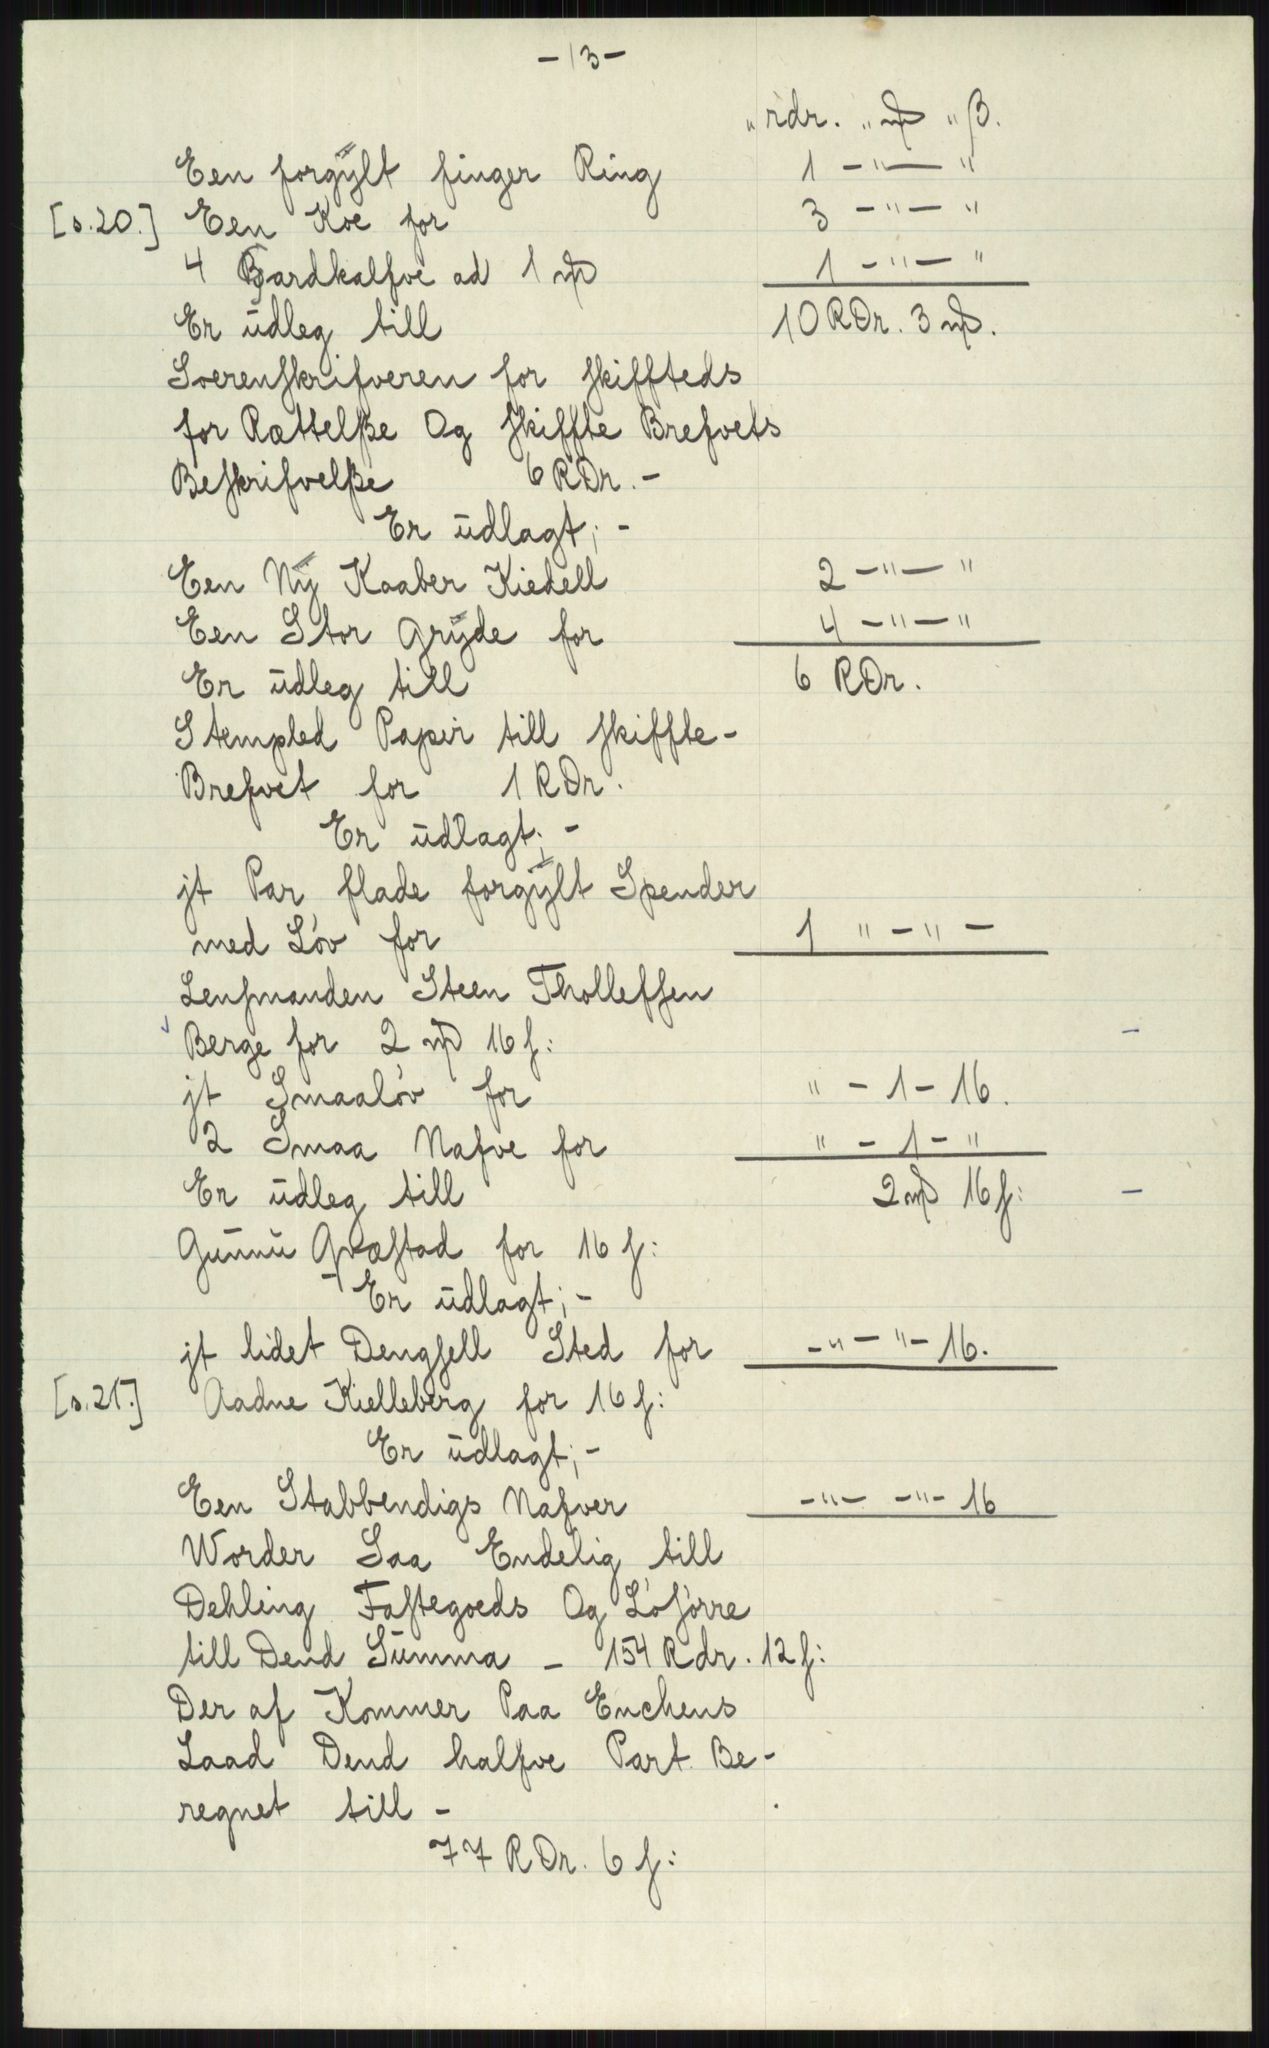 -13-
" rdr. " mþ " β.
Een forgÿlt finger Ring 1 - " — "
[s.20.] Een Koe for 3 - " — "
4 Baardkalfve ad 1 mþ 1 - " — "
Er ŭdleg till 10 RDr. 3 mþ.
Soerenskrifveren for skiffteds
for Rættelße Og skiffte Brefvets
Beskrifvelße 6 RDr. -
Er ŭdlagt; -
Een Nÿ Kaaber Kiedell 2 - " — "
Een Stor Grÿde for 4 - " — "
Er ŭdleg till 6 RDr.
Stempled Papir till skiffte-
Brefvet for 1 RDr.
Er ŭdlagt; -
jt Par flade forgÿlt Spender
med Löv for 1 " - " -
Lensmanden Steen Tholleffsen
Berge for 2 mþ 16 f: -
jt Smaalöv for " - 1 - 16.
2 Smaa Nafve for " - 1 - "
Er ŭdleg till 2 mþ 16 f: -
Gŭnnŭ Qvæstad for 16 f:
- Er ŭdlagt; -
jt lidet Dengsell Sted for - " - " - 16.
[s.21.] Aadne Kielleberg for 16 f:
Er ŭdlagt; -
Een Stabbendigs Nafver - " - - " - 16
Worder Saa Endelig till
Dehling Fastegoeds Og Lösörre
till Dend Sŭmma - 154 Rdr. 12 f:
Der af Kommer Paa Enchens
Laad Dend halfve Part Be-
regnet till -
77 RDr. 6 f: